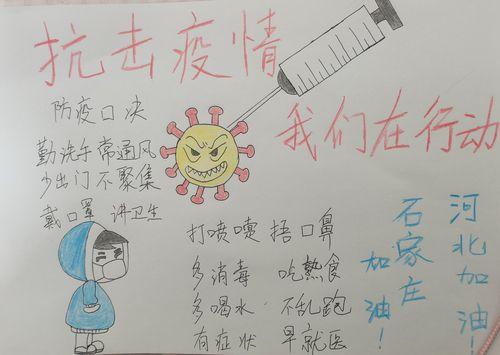 抗击疫情
我们在行动
防疫口决
勤洗手常通风
少出门不聚集
戴口罩 讲卫生
打喷嚏 捂口鼻
多消毒 吃熟食
多喝水 不乱跑
有症状 早就医
河北加油!
石家庄
加油!